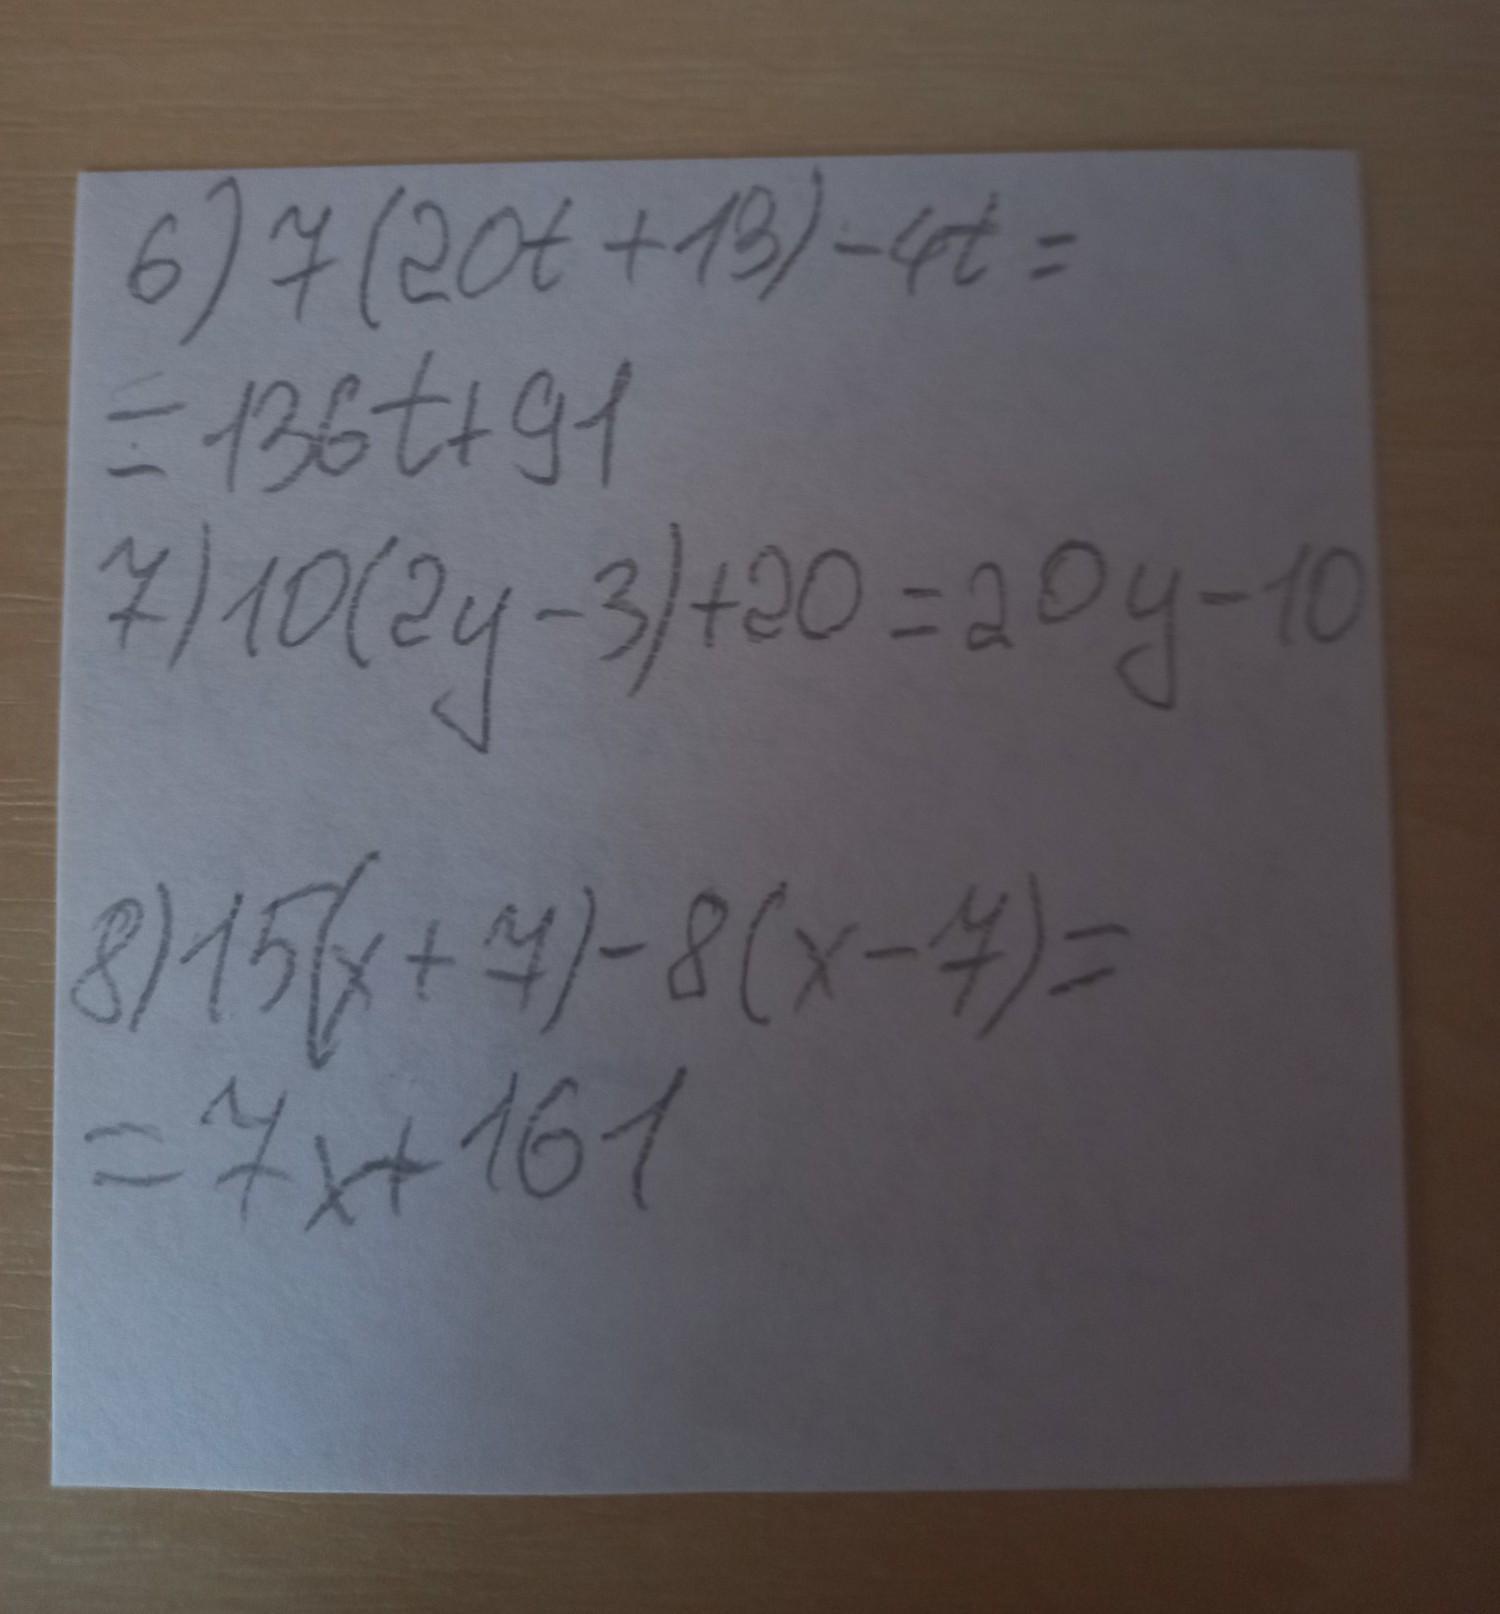 6) 7(20t+13)-4t=
=136t+91
7) 10(2y-3)+20=20y-10
8) 15(x+7)-8(x-7)=
=7x+161